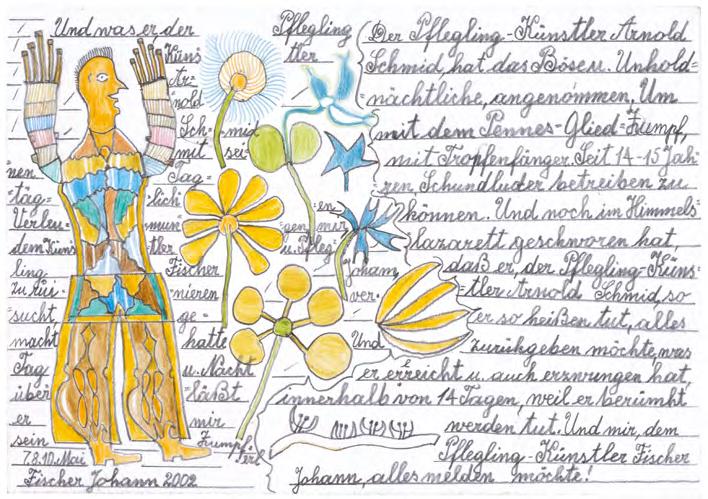 Und was er der Pflegling
Küns= tler
Ar=
nold
Sch= mid
mit sei=
nen Tag=
täg= lich en
Verleu= mun= gen, mir
dem Küns tler u. Pfleg
ling Fischer Johann,
zu rui= nieren ver=
sucht ge=
macht hatte Und
Tag u. Nacht
über läßt
er mir
sein Zumpf=
erl
7.8.10.Mai
Fischer Johann 2002
Der Pflegling-Künstler Arnold
Schmid, hat das Böse u. Unhold=
nächtliche, angenommen, Um
mit dem Pennes-Glied=Zumpf,
mit Tropfenfänger. Seit 14-15 Jah=
ren, Schundluder betreiben zu
können. Und noch im Himmels=
lazarett geschworen hat,
daß er, der Pflegling-Küns=
tler Arnold Schmid, so
er so heißen tut, alles
zurükgeben möchte, was
er erreicht u. auch erzwungen hat,
innerhalb von 14 Tagen, weil er berümht
werden tut. Und mir, dem
Pflegling-Künstler Fischer
Johann, alles melden möchte!